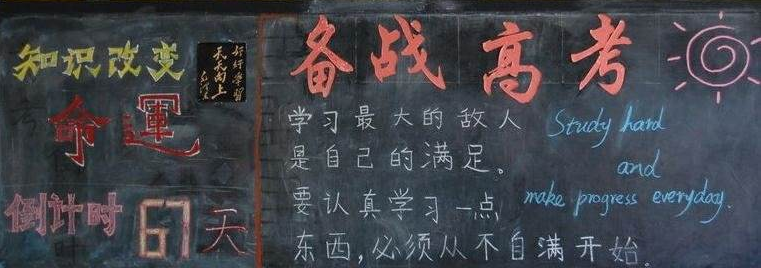 知识改变
命運
好好学习
天天向上
倒计时 67 天
备战高考
学习最大的敌人
是自己的满足。
要认真学习一点
东西,必须从不自满开始。
Study hard
and
make progress everyday.